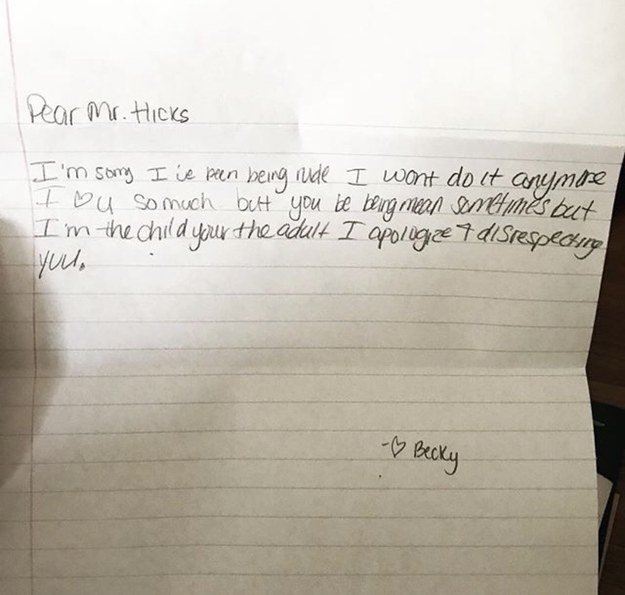 Dear Mr. Hicks
I'm sorry I've been being rude I wont do it anymore
I ♡ u so much but you be being mean sometimes but
I'm the child your the adult I apologize 4 disrespecting
you.
-♡ Becky